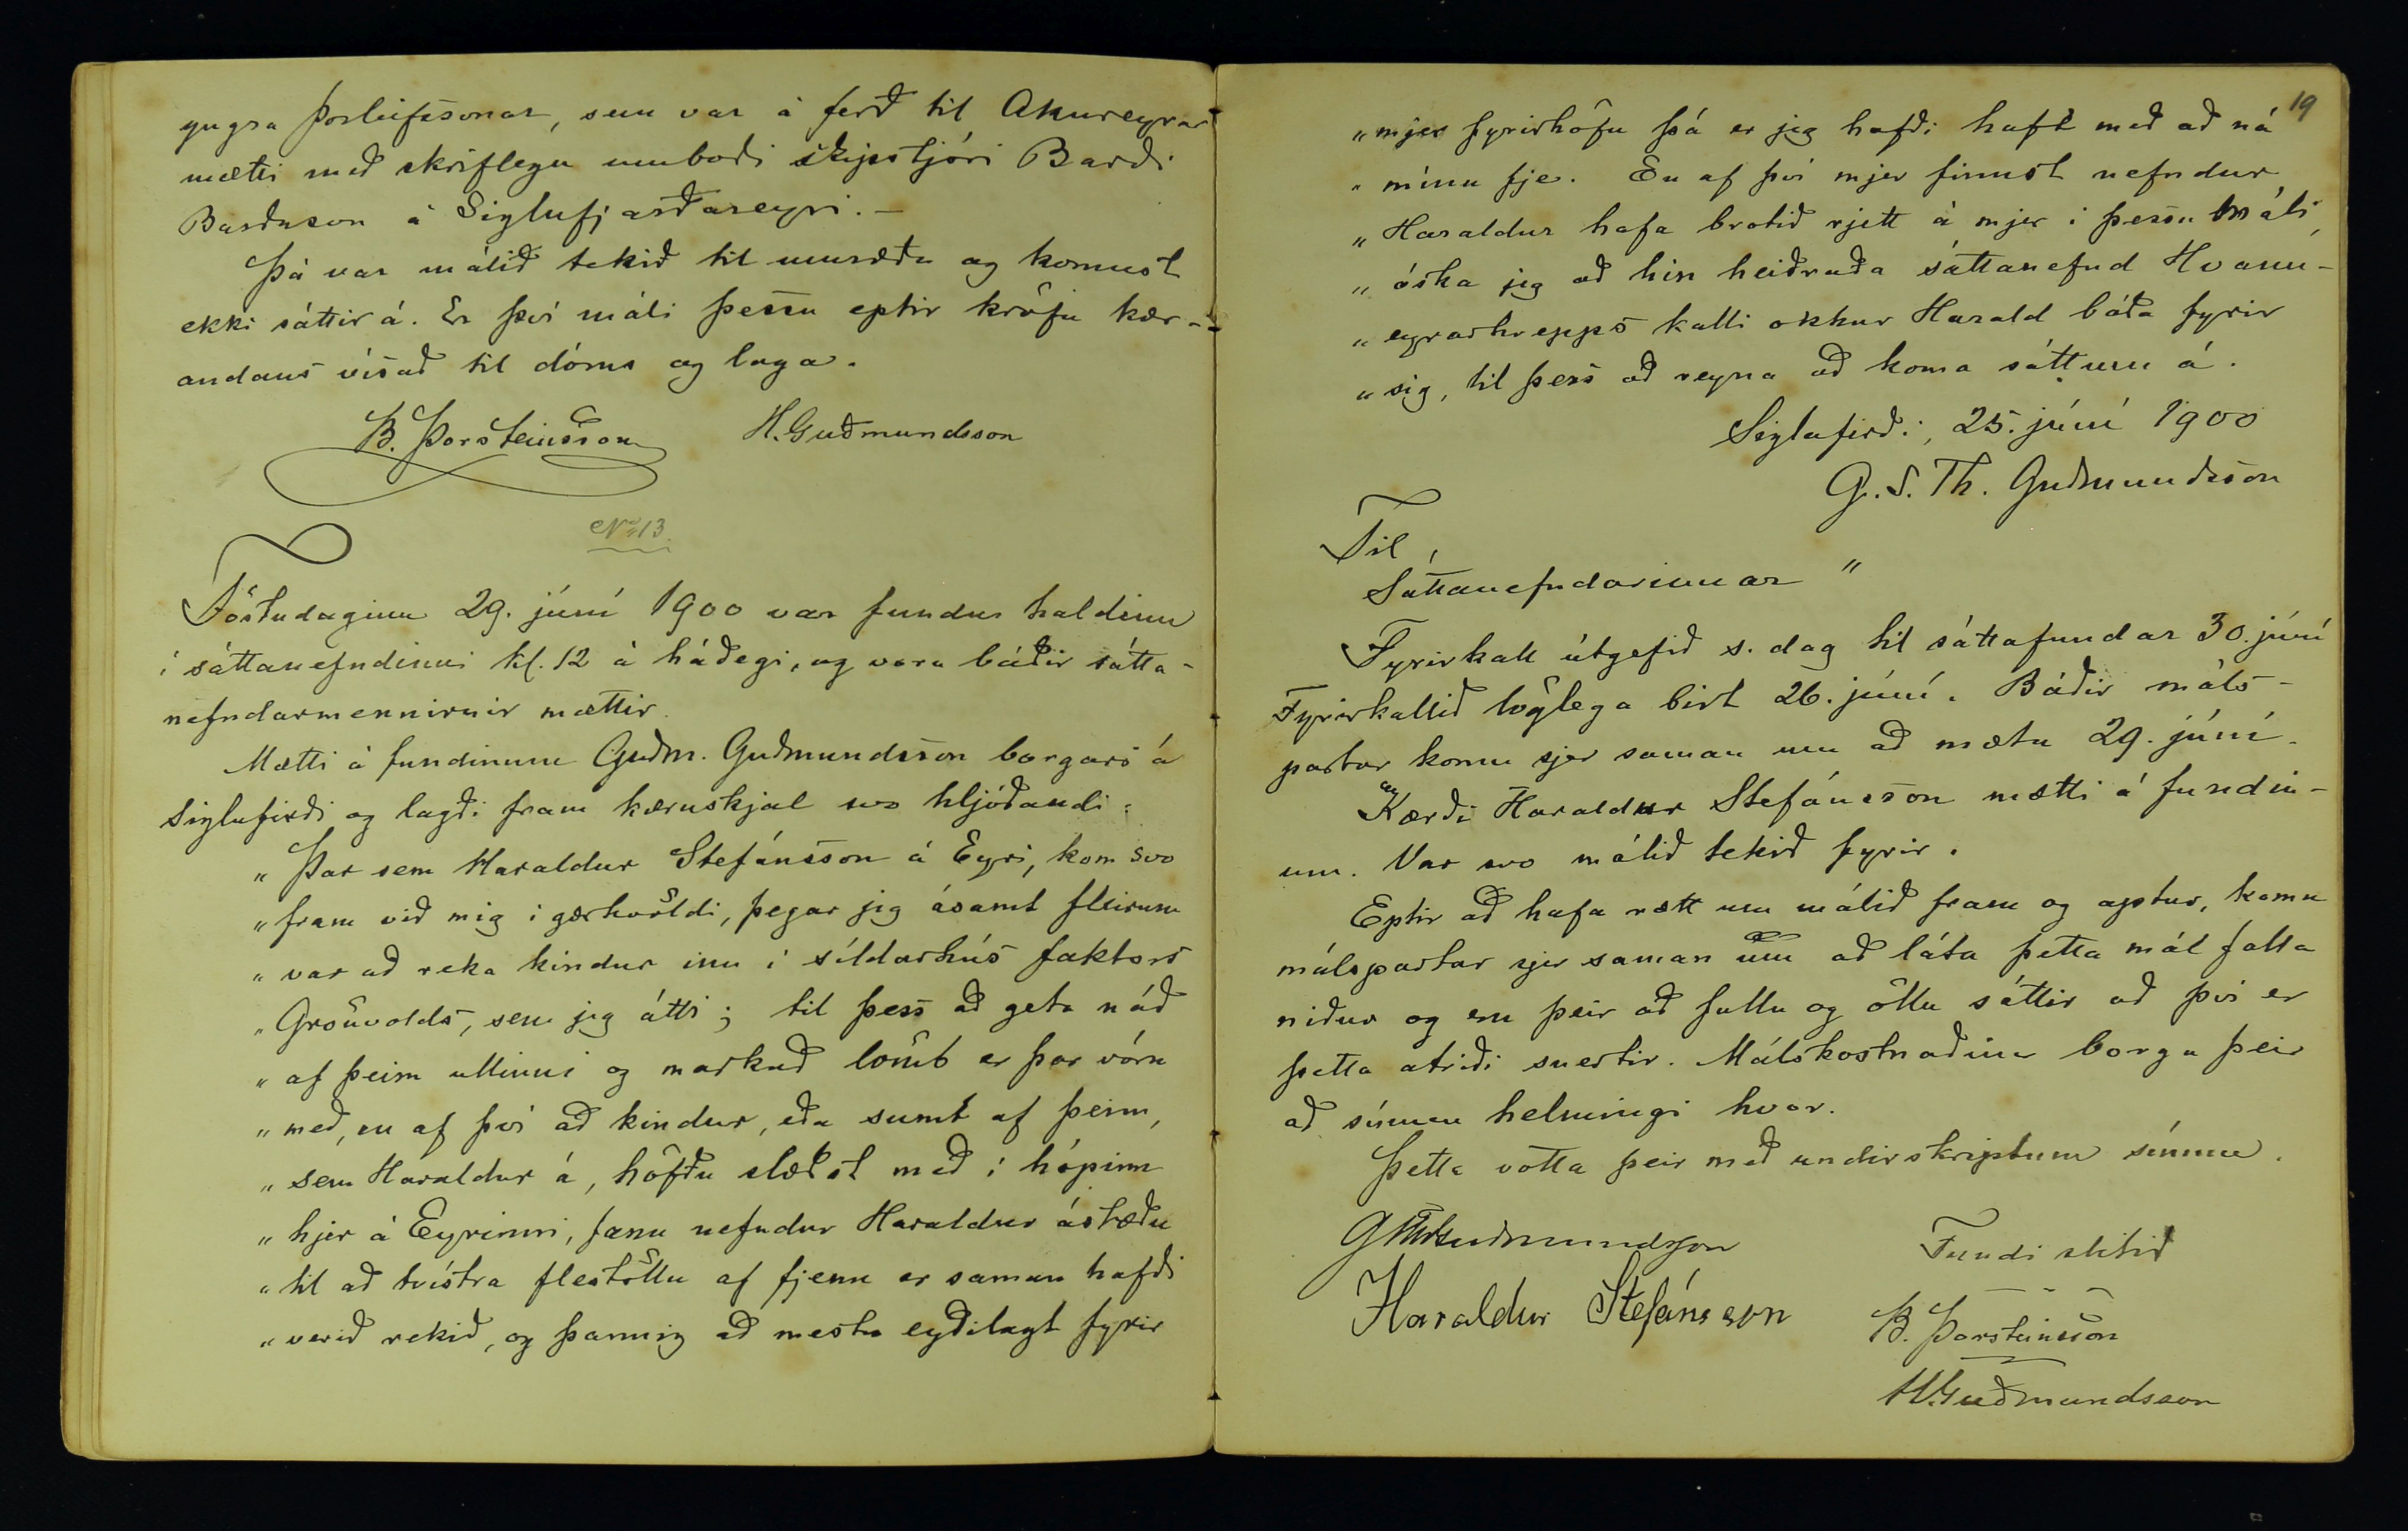 yngra Þorleifssonar, sem var á ferð til Akureyrar
mætti með skriflegu umboði skipstjóri Barði
Barðason á Siglufjarðareyri.-
Þá var málið tekið til umræðu og komust
ekki sáttir á. Er því máli þessu eptir kröfu kær-
andans vísað til dóms og laga.
B. Þorsteinsson H. Guðmundsson
No 13.
Föstudaginn 29. júní 1900 var fundur haldinn
í sáttanefndinni kl. 12 á hádegi, og voru báðir sátta-
nefndarmennirnir mættir.
Mætti á fundinum Guðm. Guðmundsson borgari á
Siglufirði og lagði fram kæruskjal svo hljóðandi:
„Þar sem Haraldur Stefánsson á Eyri, kom svo
„fram við mig í gærkvöldi, þegar jeg ásamt fleirum
„var að reka kindur inn í síldarhús faktors
„Grönvolds, sem jeg átti; til þess að geta náð
„af þeim ullinni og markað lömb er þar vóru
„með, en af því að kindur, eða sumt af þeim,
„sem Haraldur á, höfðu slæðst með í hópinn
„hjer á Eyrinni, fann nefndur Haraldur ástæðu
„til að tvístra flestöllu af fjenu er saman hafði
„verið rekið, og þannig að mestu eyðilagt fyrir
19
„mjer fyrirhöfn þá er jeg hafði haft með að ná
„mínu fje. En af því mjer finnst nefndur
„Haraldur hafa brotið rjett á mjer í þessu máli,
„óska jeg að hin heiðraða sáttanefnd Hvann-
„eyrarhrepps kalli okkur Harald báða fyrir
„sig, til þess að reyna að koma sáttum á.
Siglufirði, 25. júní 1900
G. S. Th. Guðmundsson
Til
Sáttanefndarinnar "
Fyrirkall útgefið s. dag til sáttafundar 30. júní
Fyrirkallið löglega birt 26. júní. Báðir máls-
partar komu sjer saman um að mæta 29. júní.
Kærði Haraldur Stefánsson mætti á fundin-
um. Var svo málið tekið fyrir.
Eptir að hafa rætt um málið fram og aptur, komu
málspartar sjer saman um að láta þetta mál falla
niður og eru þeir að fullu og öllu sáttir að því er
þetta atriði snertir. Málskostnaðinn borga þeir
að sínum helmingi hvor.
Þetta votta þeir með undirskriptum sínum.
GSThGuðmundsson Fundi slitið
Haraldur Stefánsson B. Þorsteinsson
H. Guðmundsson